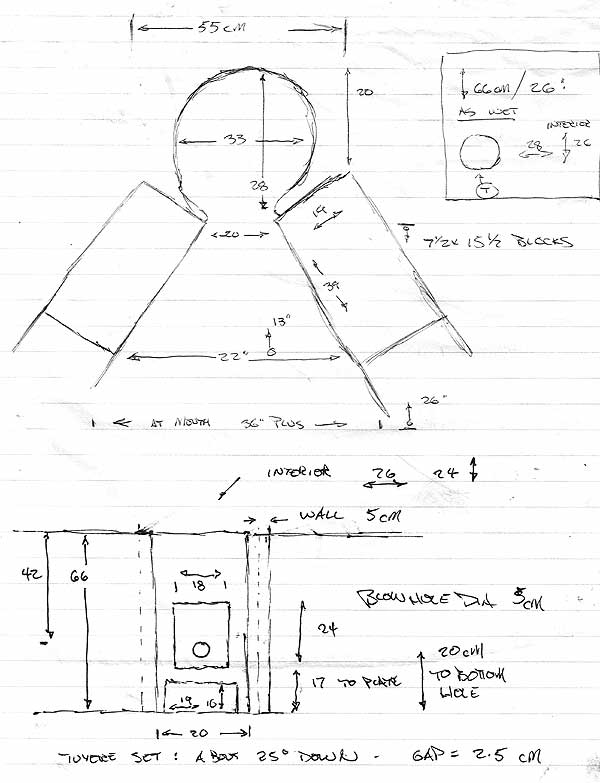 55 cm
20
66 cm / 26"
AS WET
INTERIOR
28
T
33
28
20
19
39
7 1/2 x 15 1/2 BLOCKS
13"
22"
26"
AT MOUTH 36" PLUS
INTERIOR 26 24
WALL 5 cm
42
66
18
BLOWHOLE DIA 5cm
24
20 cm
TO BOTTOM
HOLE
17 TO PLATE
19
16
20
TUYERE SET : ABOUT 25° DOWN - GAP = 2.5 cm